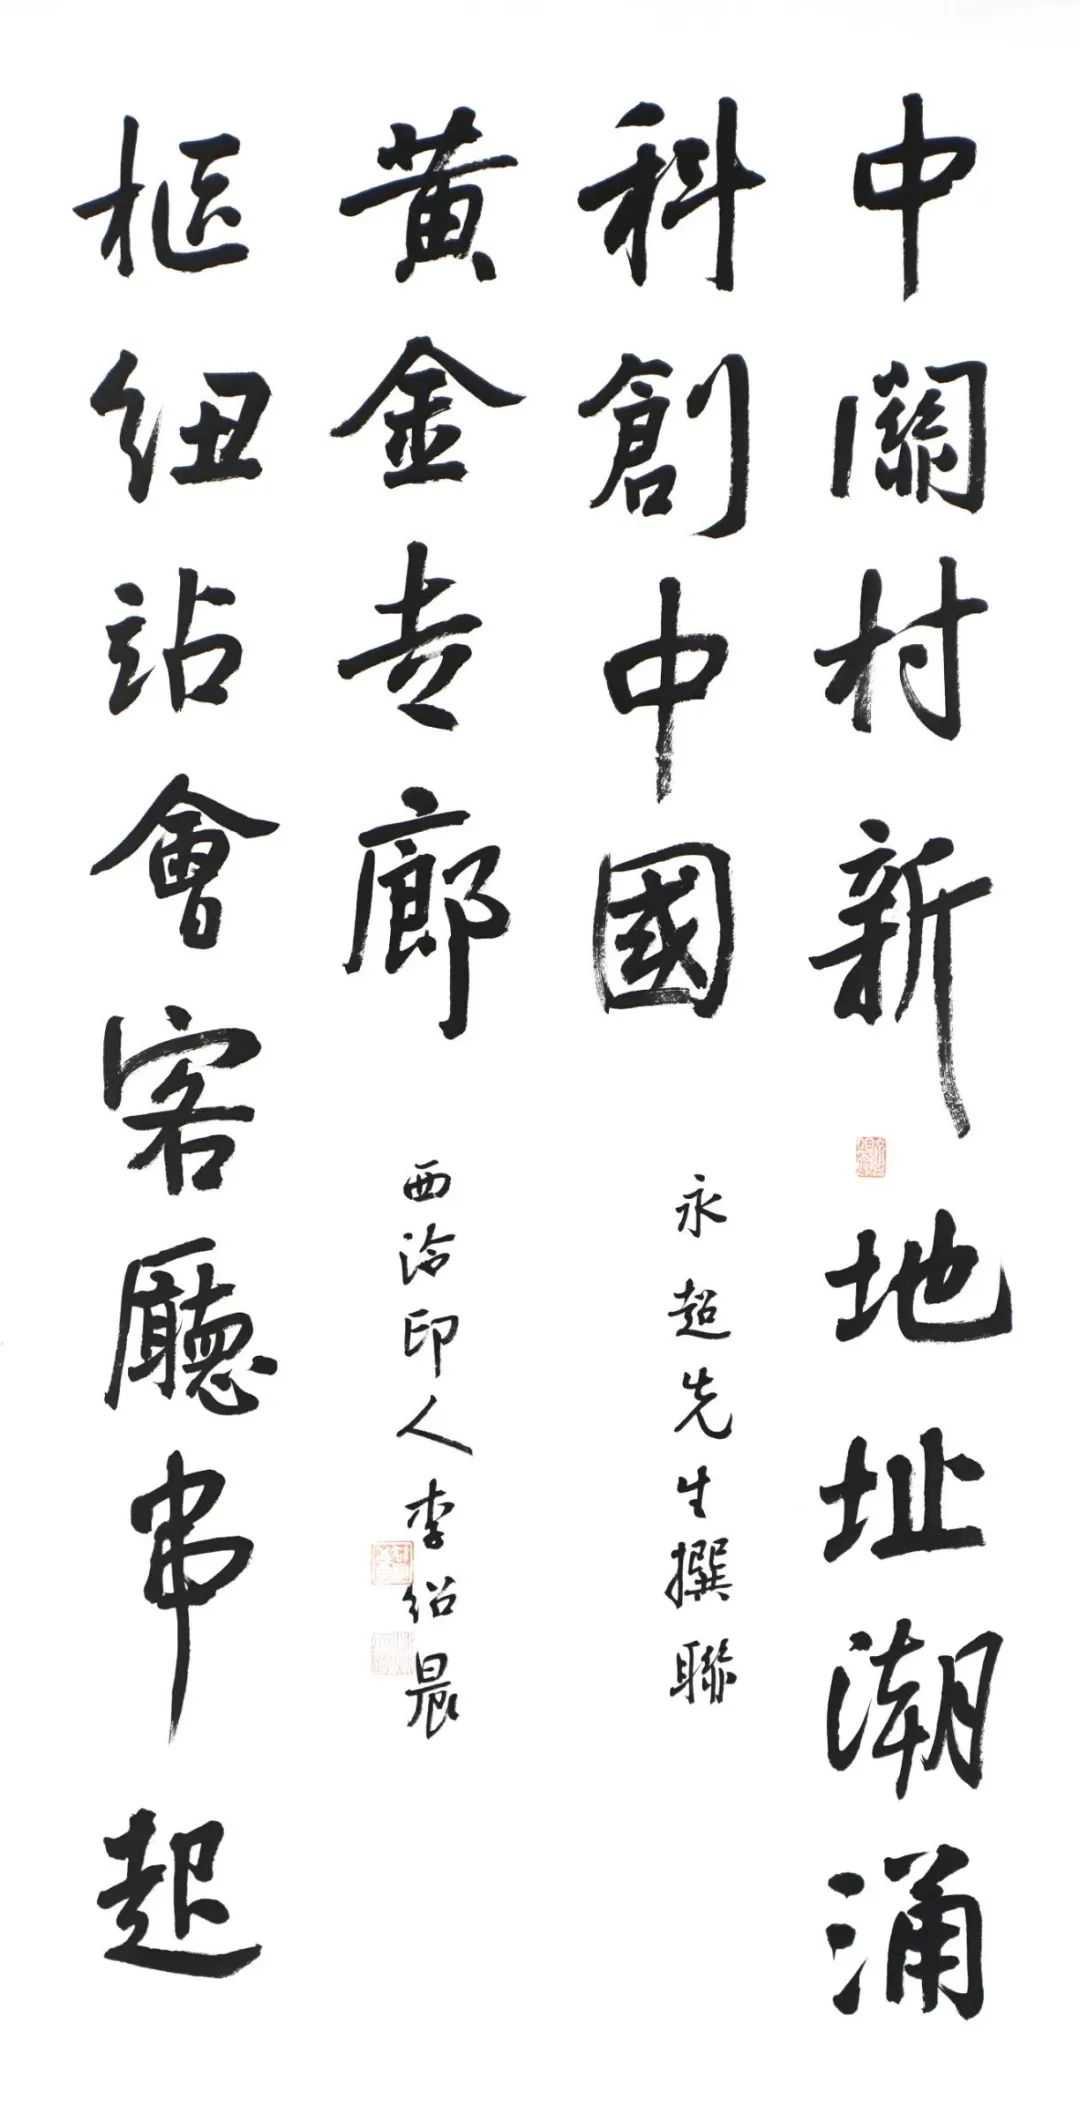 中關村新地址潮涌
科創中國
永超先生撰聯
黃金走廊
西泠印人李紹晨
樞紐站會客廳串起